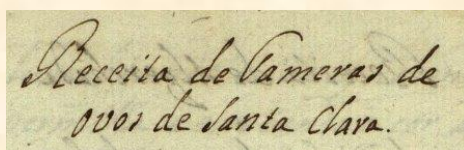 Receita de Tameras de
ovos de Santa Clara.